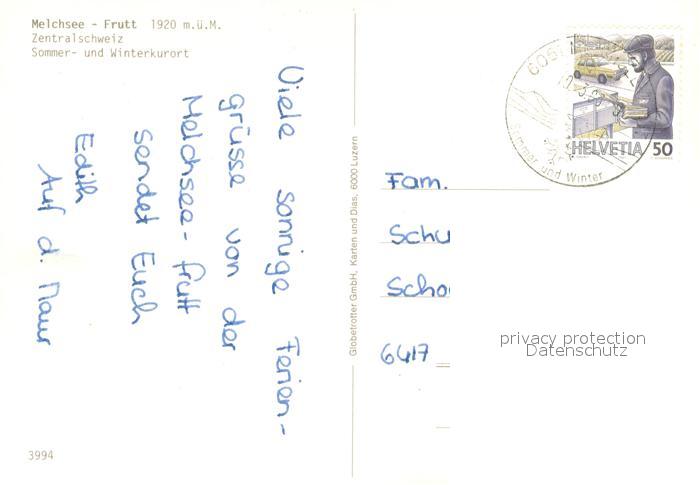 Melchsee - Frutt 1920 m.ü.M.
Zentralschweiz
Sommer- und Winterkurort
Viele sonnige Ferien-
grüsse von der
Melchsee-frutt
sendet Euch
Edith
Auf d. Maur
3994
Globetrotter GmbH, Karten und Dias, 6000 Luzern
Sommer und Winter
HELVETIA 50
Fam.
Schu
Scho
6417
privacy protection
Datenschutz